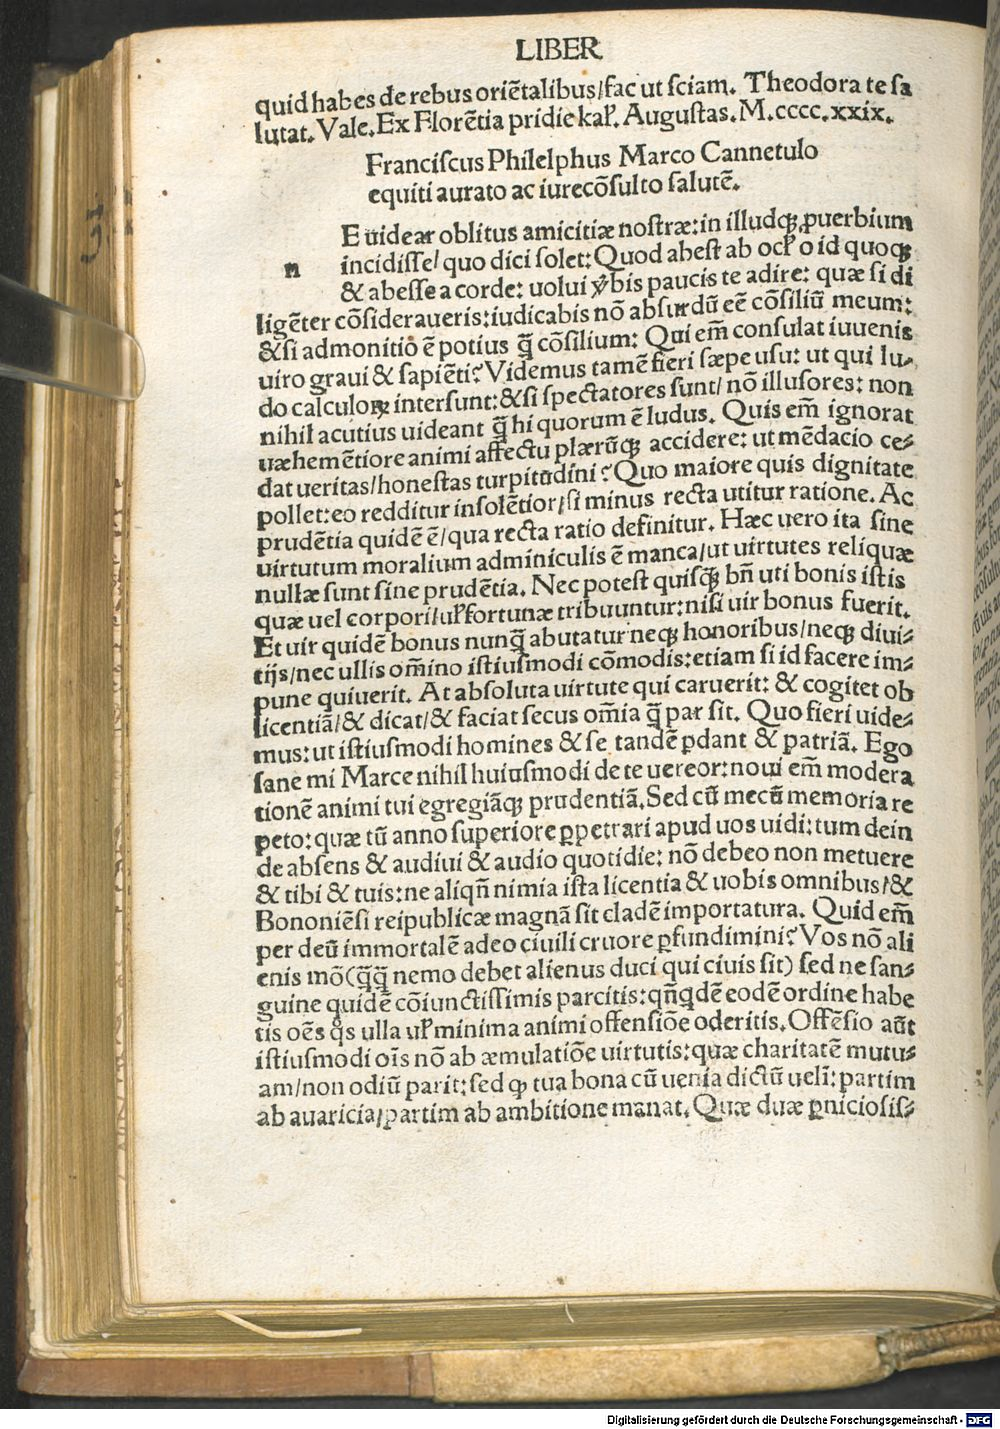 LIBER
quid habes de rebus oriētalibus/fac ut sciam. Theodora te sa
lutat. Vale. Ex Florētia pridie kaƚ. Augustas. M.cccc.xxix.
Franciscus Philelphus Marco Cannetulo
equiti aurato ac iurecōsulto salutē.
E uidear oblitus amicitiæ nostræ: in illudqꝫ ꝓuerbium
n incidisse/ quo dici solet: Quod abest ab ocƚo id quoqꝫ
& abesse a corde: uolui v̄bis paucis te adire: quæ si di
ligēter cōsideraueris: iudicabis nō absurdū eē cōsiliū meum:
& si admonitio ē potius q̄ cōsilium: Qui em̄ consulat iuuenis
uiro graui & sapiēti? Videmus tamē fieri sæpe usu: ut qui lu-
do calculoꝝ intersunt: & si spectatores sunt/ nō illusores: non
nihil acutius uideant q̄ hi quorum ē ludus. Quis em̄ ignorat
uæhemētiore animi affectu plærūqꝫ accidere: ut mēdacio ce-
dat ueritas/honestas turpitudini? Quo maiore quis dignitate
pollet: eo redditur insolētior/si minus recta utitur ratione. Ac
prudētia quidē ē/qua recta ratio definitur. Hæc uero ita sine
uirtutum moralium adminiculis ē manca/ut uirtutes reliquæ
nullæ sunt sine prudētia. Nec potest quisqꝫ bn̄ uti bonis istis
quæ uel corpori/uƚ fortunæ tribuuntur: nisi uir bonus fuerit.
Et uir quidē bonus nunq̄ abutatur neqꝫ honoribus/neqꝫ diui-
tijs/nec ullis om̄ino istiusmodi cōmodis: etiam si id facere im-
pune quiuerit. At absoluta uirtute qui caruerit: & cogitet ob
licentiā/& dicat/& faciat secus om̄ia q̄ par sit. Quo fieri uide-
mus: ut istiusmodi homines & se tandē ꝑdant & patriā. Ego
sane mi Marce nihil huiusmodi de te uereor: noui em̄ modera
tionē animi tui egregiāqꝫ prudentiā. Sed cū mecū memoria re
peto: quæ tū anno superiore ꝑpetrari apud uos uidi: tum dein
de absens & audiui & audio quotidie: nō debeo non metuere
& tibi & tuis: ne aliqn̄ nimia ista licentia & uobis omnibus/&
Bononiēsi reipublicæ magnā sit cladē importatura. Quid em̄
per deū immortalē adeo ciuili cruore ꝑfundimini? Vos nō ali
enis mō (q̄q̄ nemo debet alienus duci qui ciuis sit) sed ne san-
guine quidē cōiunctissimis parcitis: qn̄qdē eodē ordine habe
tis oēs qs ulla uƚ minima animi offensiōe oderitis. Offēsio aūt
istiusmodi oīs nō ab æmulatiōe uirtutis: quæ charitatē mutu-
am/non odiū parit: sed qꝫ tua bona cū uenia dictū ueli: partim
ab auaricia/partim ab ambitione manat. Quæ duæ ꝑniciosis-
Digitalisierung gefördert durch die Deutsche Forschungsgemeinschaft - DFG